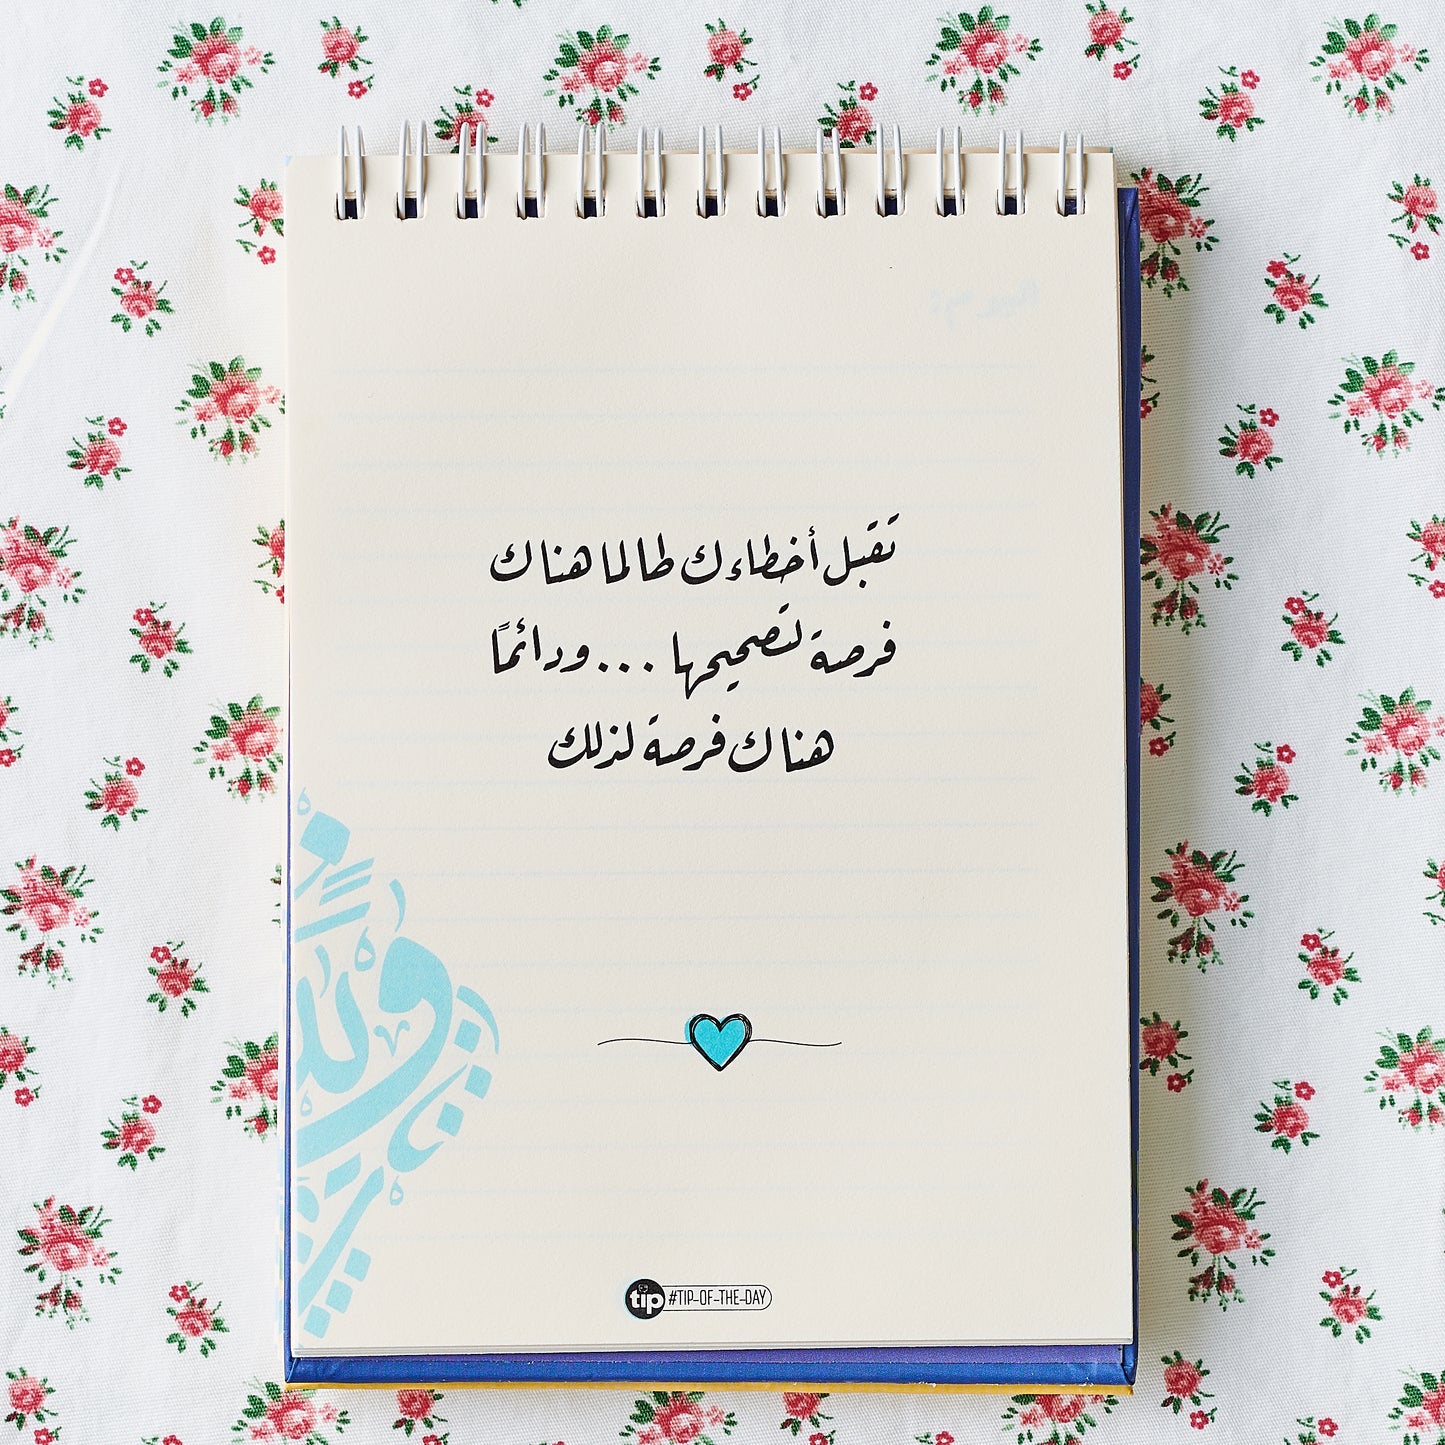 تقبل أخطاءك طالما هناك
فرصة لتصحيحها ... ودائمًا
هناك فرصة لذلك
tip #TIP-OF-THE-DAY